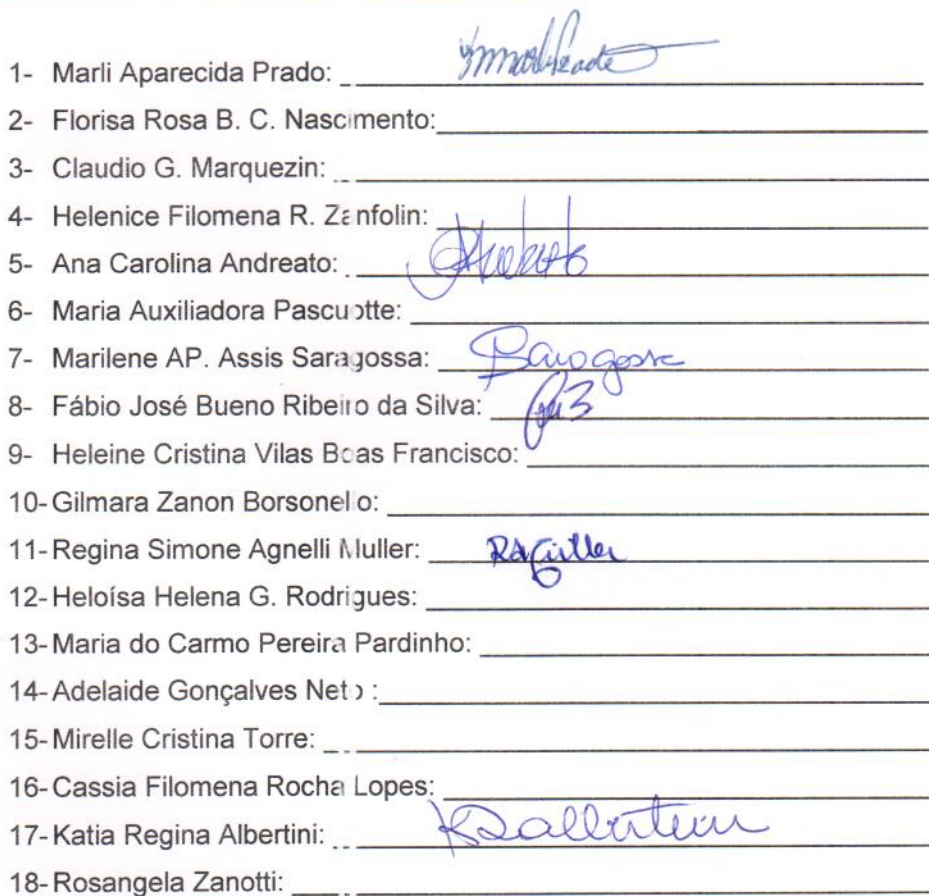 1- Marli Aparecida Prado:
2- Florisa Rosa B. C. Nascimento:
3- Claudio G. Marquezin:
4- Helenice Filomena R. Zanfolin:
5- Ana Carolina Andreato:
6- Maria Auxiliadora Pascuotte:
7- Marilene AP. Assis Saragossa: Saragossa
8- Fábio José Bueno Ribeiro da Silva:
9- Heleine Cristina Vilas Boas Francisco:
10- Gilmara Zanon Borsonello:
11- Regina Simone Agnelli Muller:
12- Heloísa Helena G. Rodrigues:
13- Maria do Carmo Pereira Pardinho:
14- Adelaide Gonçalves Neto :
15- Mirelle Cristina Torre:
16- Cassia Filomena Rocha Lopes:
17- Katia Regina Albertini: KRAlbertini
18- Rosangela Zanotti: